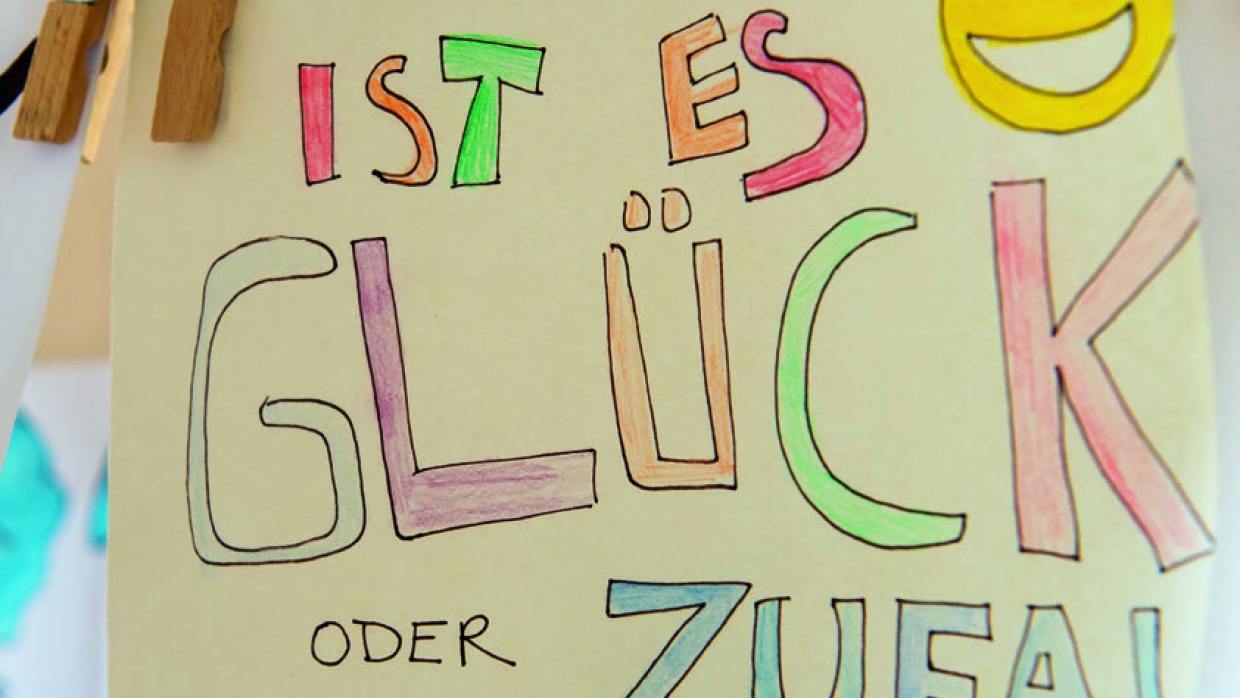 IST ES
GLÜCK
ODER ZUFAL